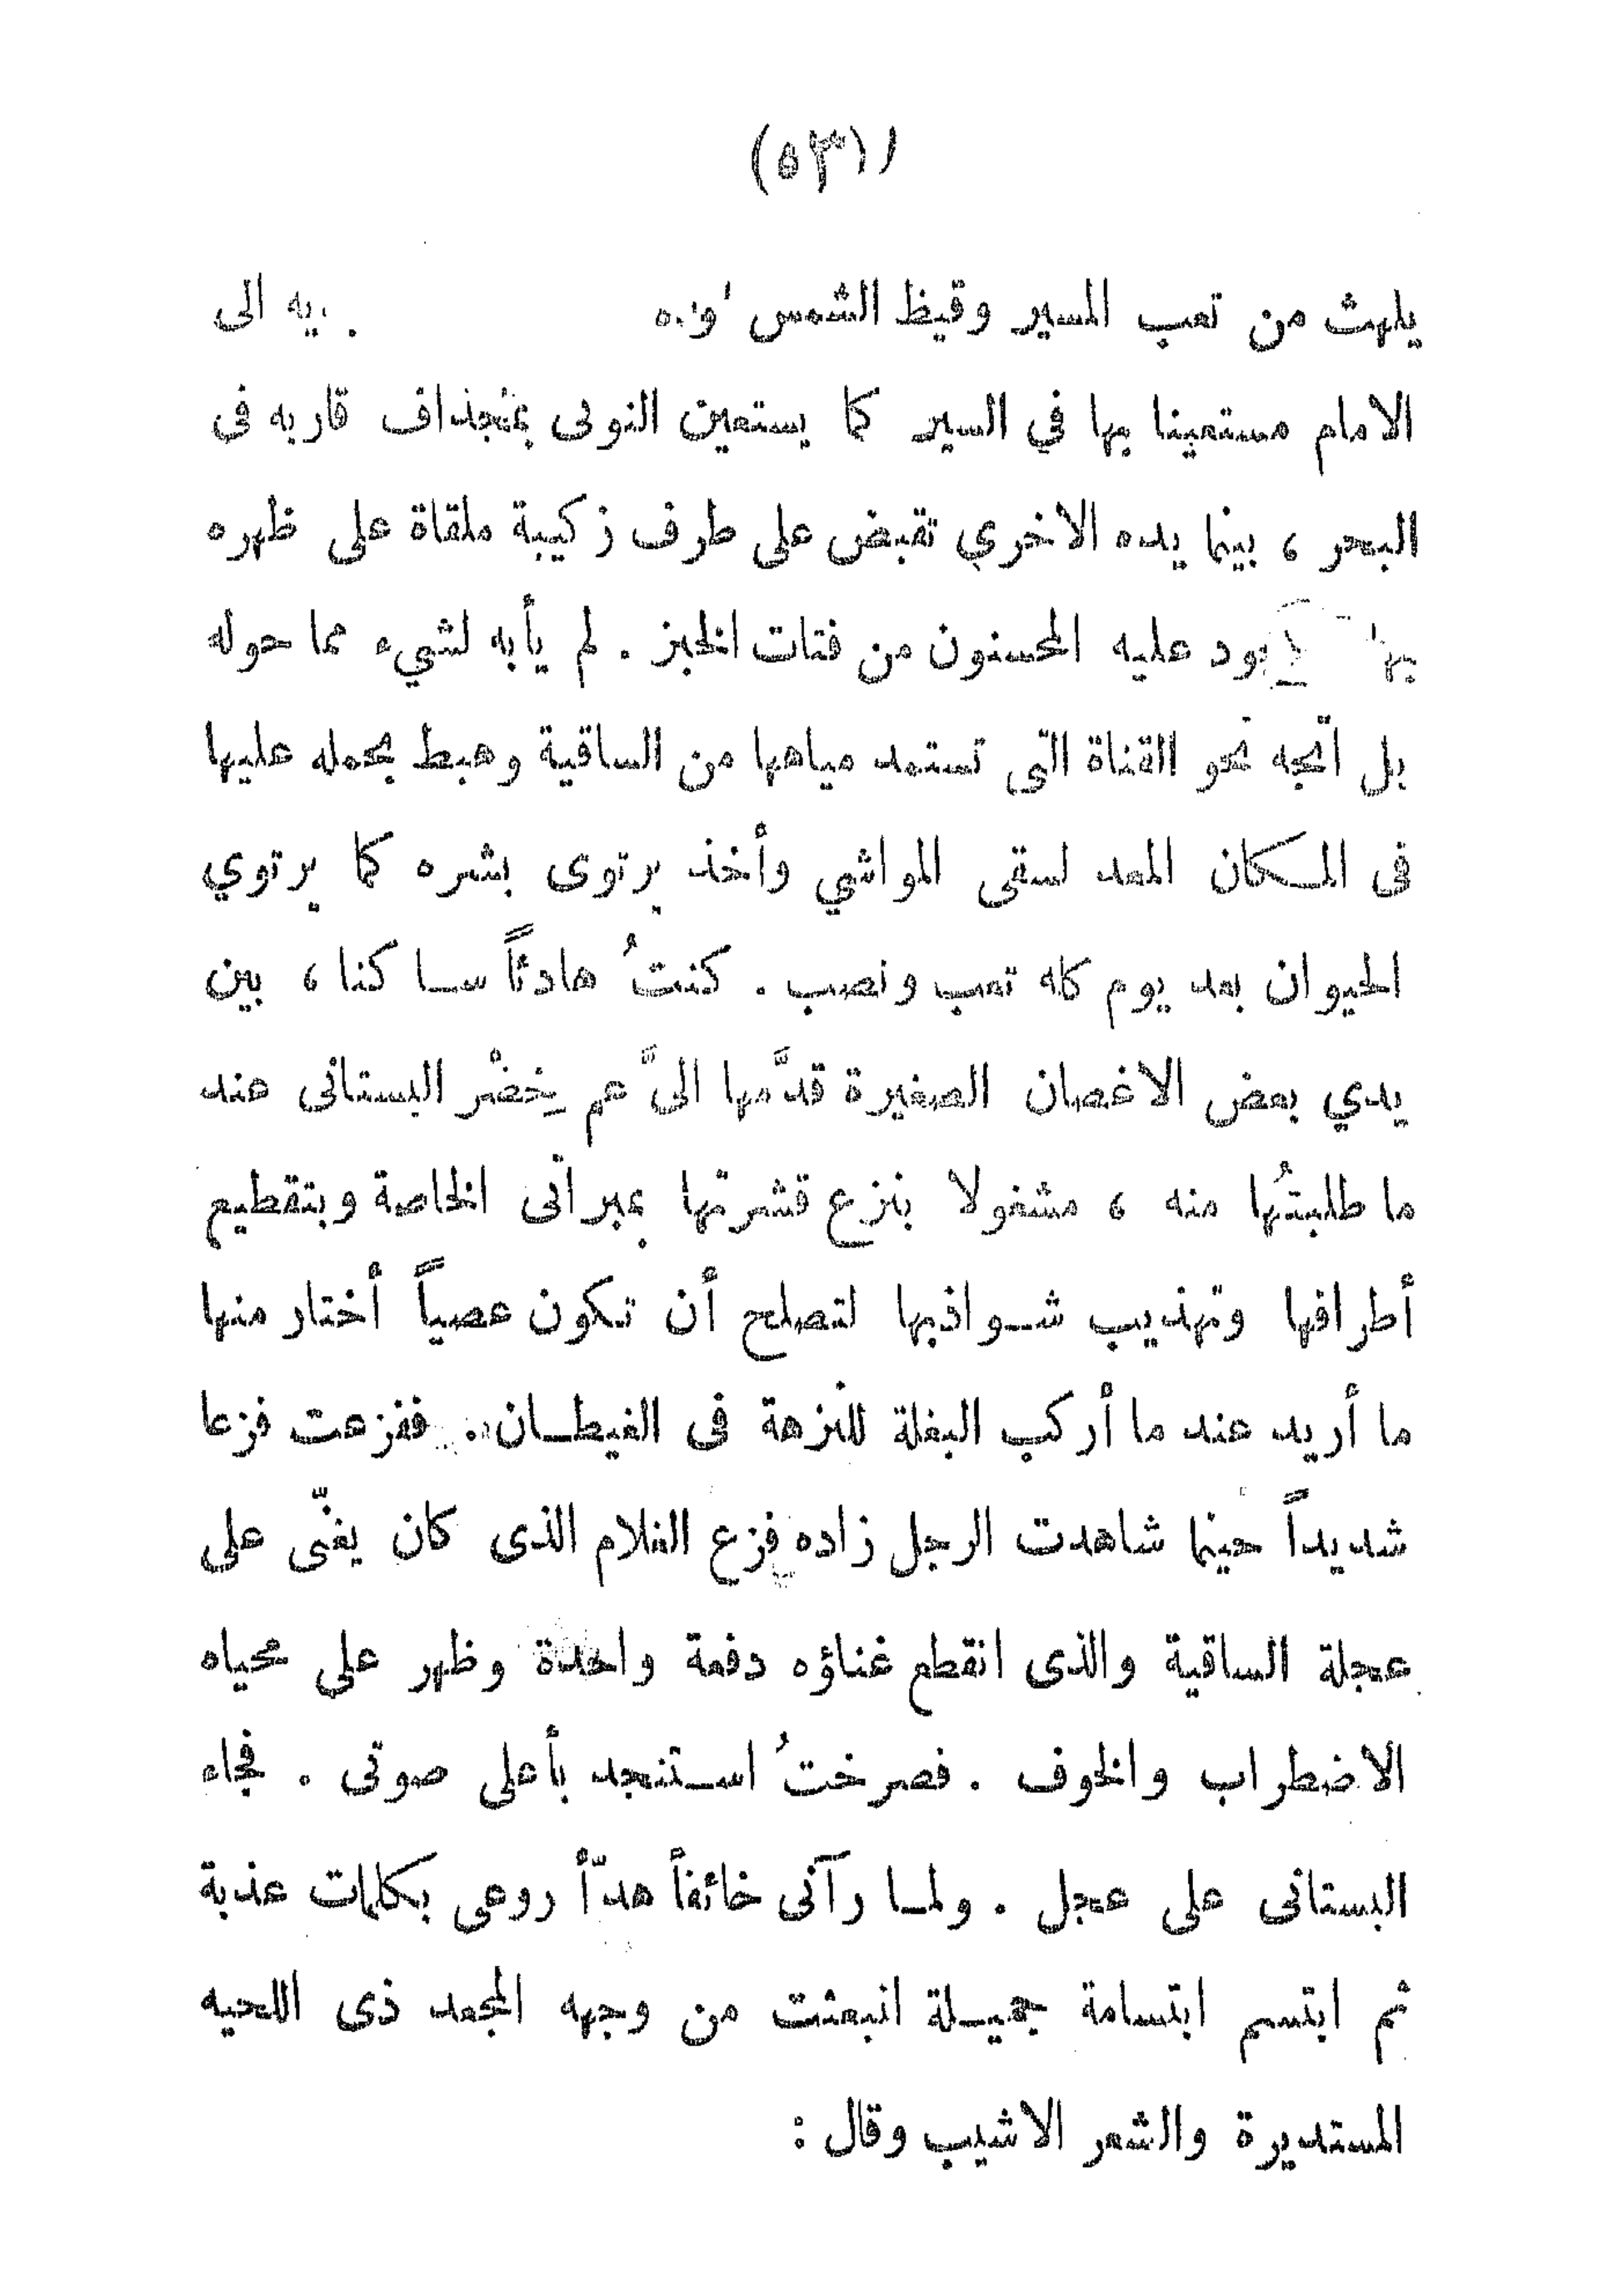 (٥٣)
يلهث من تعب المسير وقيظ الشمس الى
الامام مستعينا بها في السير كما يستعين النوتى بمجذاف قاربه فى
البحر ، بينما يده الاخري تقبض على طرف زكيبة ملقاة على ظهره
بها عليه المحسنون من فتات الخبز . لم يأبه لشيء مما حوله
بل اتجه نحو القناة التى تستمد مياهها من الساقية وهبط بحمله عليها
فى المكان المعد لسقى المواشي وأخذ يرتوى بشره كما يرتوي
الحيوان بعد يوم كله تعب ونصب . كنتُ هادئاً ساكنا ، بين
يدي بعض الاغصان الصغيرة قدَّمها الىَّ عم خِضْر البستانى عند
ما طلبتُها منه ، مشغولا بنزع قشرتها بمبراتى الخاصة وبتقطيع
أطرافها وتهذيب شواذبها لتصلح أن تكون عصياً أختار منها
ما أريد عند ما أركب البغلة للنزهة فى الغيطان .. ففزعت فزعا
شديداً حينما شاهدت الرجل زاده فزع الغلام الذى كان يغنّى على
عجلة الساقية والذى انقطع غناؤه دفعة واحدة وظهر على محياه
الاضطراب والخوف . فصرختُ استنجد بأعلى صوتى . فجاء
البستانى على عجل . ولما رآنى خائفاً هدّأ روعى بكلمات عذبة
ثم ابتسم ابتسامة جميلة انبعثت من وجهه المجعد ذى اللحيه
المستديرة والشعر الاشيب وقال :